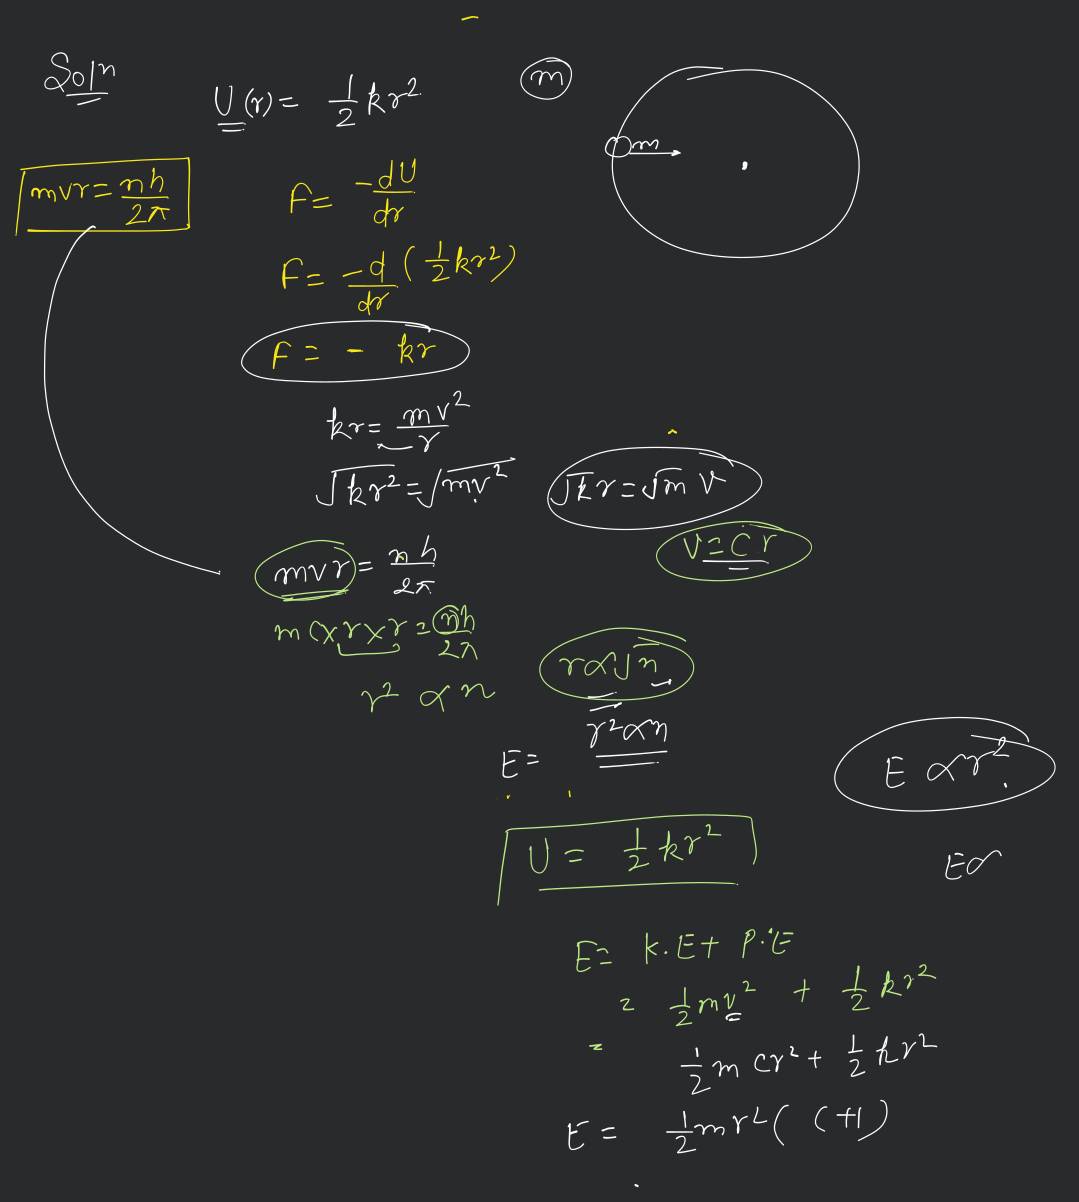 Solⁿ
U(r) = 1/2 kr²
m
m
mvr = nh/2π
F = -dU/dr
F = -d/dr (1/2 kr²)
F = - kr
kr = mv²/r
√kr² = √mv²
√k r = √m v
v = cr
mvr = nh/2π
m c × r × r = nh/2π
r² ∝ n
r ∝ √n
r² ∝ n
E =
E ∝ r²
U = 1/2 kr²
E ∝
E = K.E + P.E
= 1/2 mv² + 1/2 kr²
=
1/2 m cr² + 1/2 kr²
E = 1/2 mr² ( c+1)